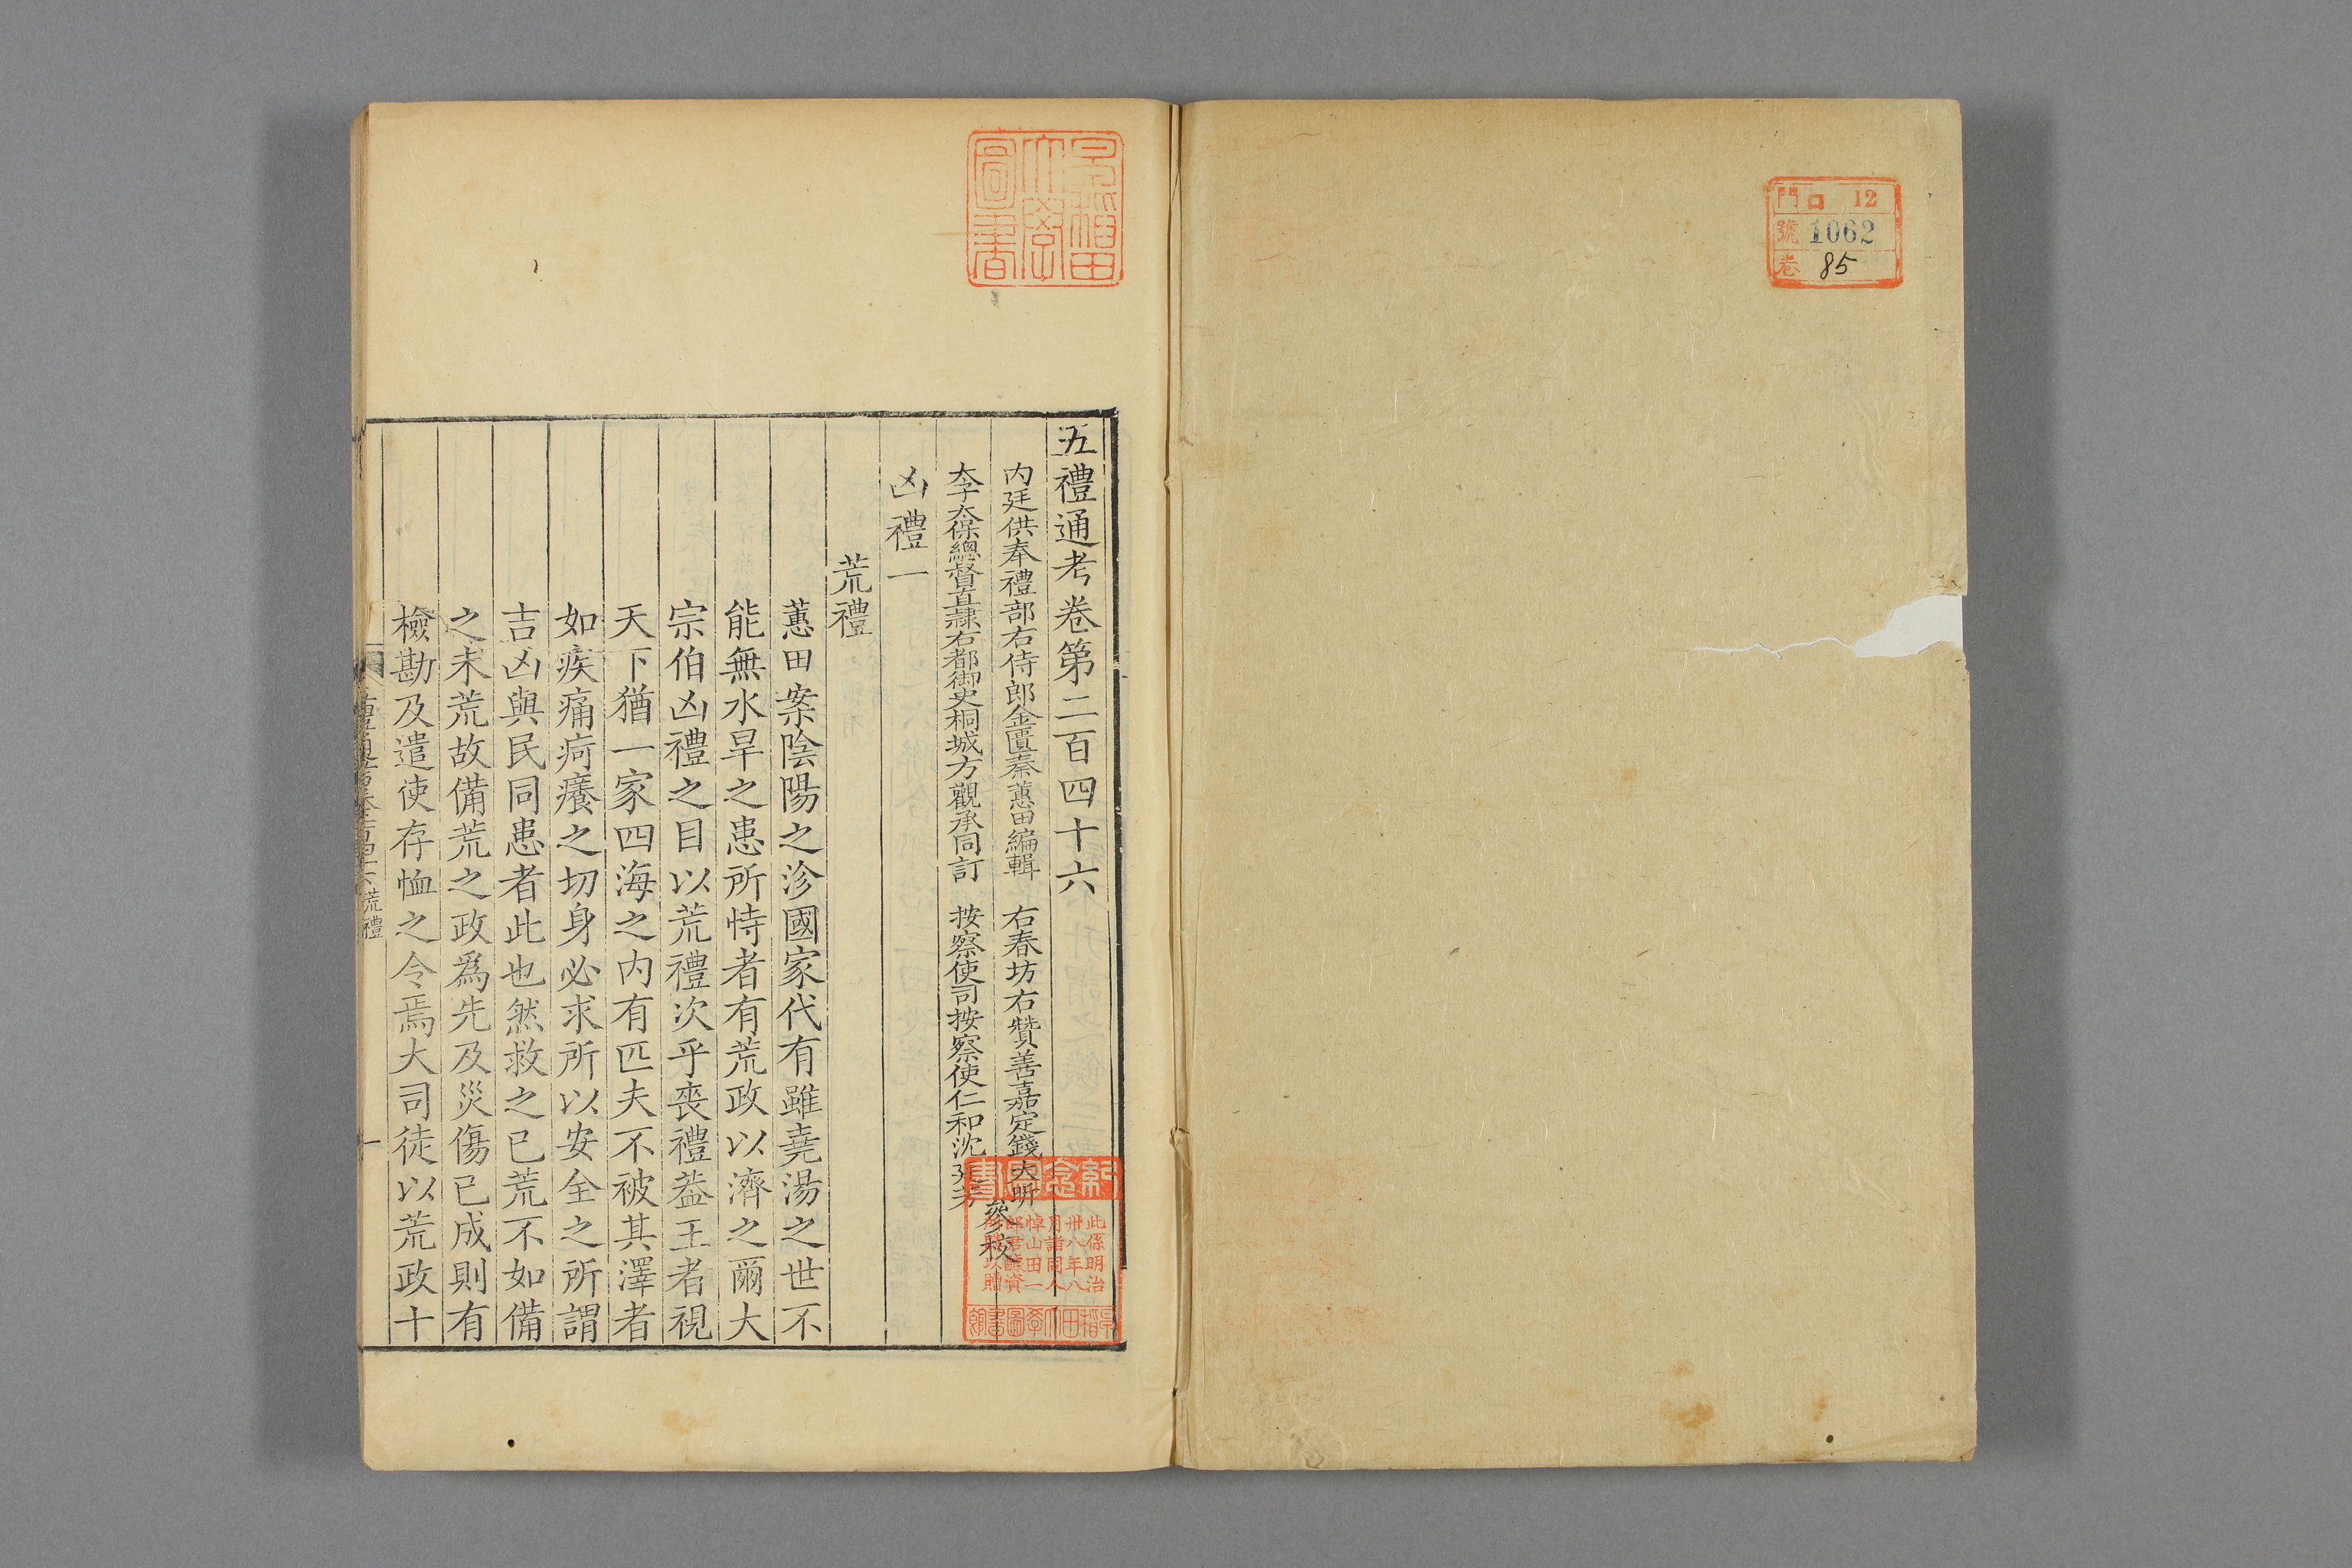 門 ロ 12
號 1062
卷 85
早稻田大學圖書
五禮通考卷第二百四十六
內廷供奉禮部右侍郎金匱秦蕙田編輯 右春坊右贊善嘉定錢大昕
太子太保總督直隸右都御史桐城方觀承同訂 按察使司按察使仁和沈廷芳
參校
凶禮一
荒禮
蕙田案陰陽之沴國家代有雖堯湯之世不
能無水旱之患所恃者有荒政以濟之爾大
宗伯凶禮之目以荒禮次乎喪禮葢王者視
天下猶一家四海之內有匹夫不被其澤者
如疾痛疴癢之切身必求所以安全之所謂
吉凶與民同患者此也然救之已荒不如備
之未荒故備荒之政爲先及災傷已成則有
檢勘及遣使存恤之令焉大司徒以荒政十
荒禮
一
紀念圖書
此係明治
卅八年八
月諸同人
悼山田一
郎君醵資
以贈
早稻田大學圖書館